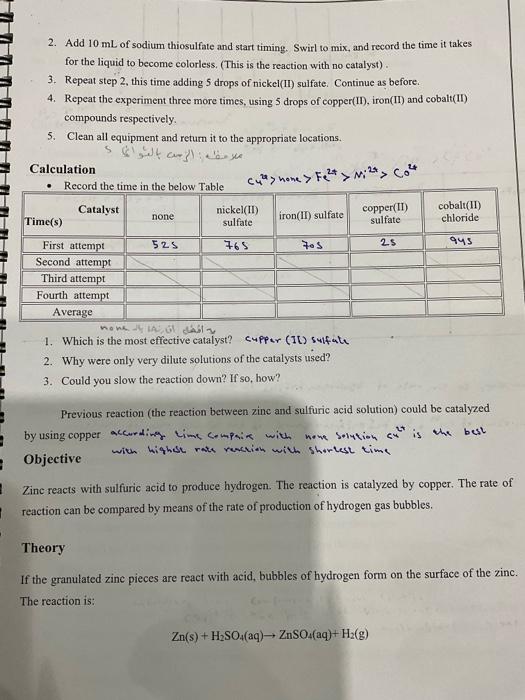 2. Add 10 mL of sodium thiosulfate and start timing. Swirl to mix, and record the time it takes
for the liquid to become colorless. (This is the reaction with no catalyst).
3. Repeat step 2, this time adding 5 drops of nickel(II) sulfate. Continue as before.
4. Repeat the experiment three more times, using 5 drops of copper(II), iron(II) and cobalt(II)
compounds respectively.
5. Clean all equipment and return it to the appropriate locations.
Calculation
Cu2+ > none > Fe2+ > Ni2+ > Co2+
• Record the time in the below Table
Catalyst none nickel(II) sulfate iron(II) sulfate copper(II) sulfate cobalt(II) chloride
Time(s)
First attempt 52s 76s 70s 2s 94s
Second attempt
Third attempt
Fourth attempt
Average
none
1. Which is the most effective catalyst? cupper (II) sulfate
2. Why were only very dilute solutions of the catalysts used?
3. Could you slow the reaction down? If so, how?
Previous reaction (the reaction between zinc and sulfuric acid solution) could be catalyzed
by using copper according time compair with none solution cu2+ is the best
with highest rate reaction with shortest time
Objective
Zinc reacts with sulfuric acid to produce hydrogen. The reaction is catalyzed by copper. The rate of
reaction can be compared by means of the rate of production of hydrogen gas bubbles.
Theory
If the granulated zinc pieces are react with acid, bubbles of hydrogen form on the surface of the zinc.
The reaction is:
Zn(s) + H₂SO₄(aq)→ ZnSO₄(aq)+ H₂(g)